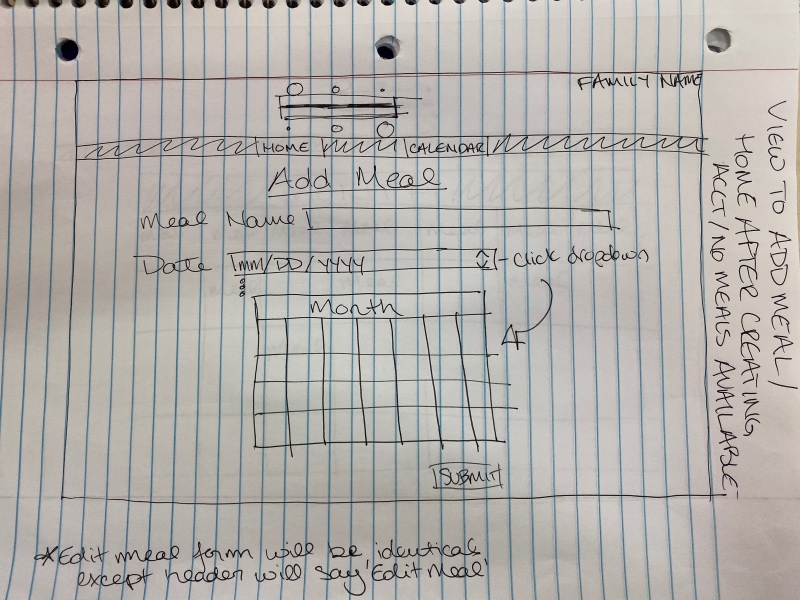 FAMILY NAME
HOME CALENDAR
Add Meal
Meal Name
Date MM/DD/YYYY - click dropdown
Month
SUBMIT
VIEW TO ADD MEAL/
HOME AFTER CREATING
ACCT/NO MEALS AVAILABLE
*Edit meal form will be identical
except header will say 'Edit Meal'